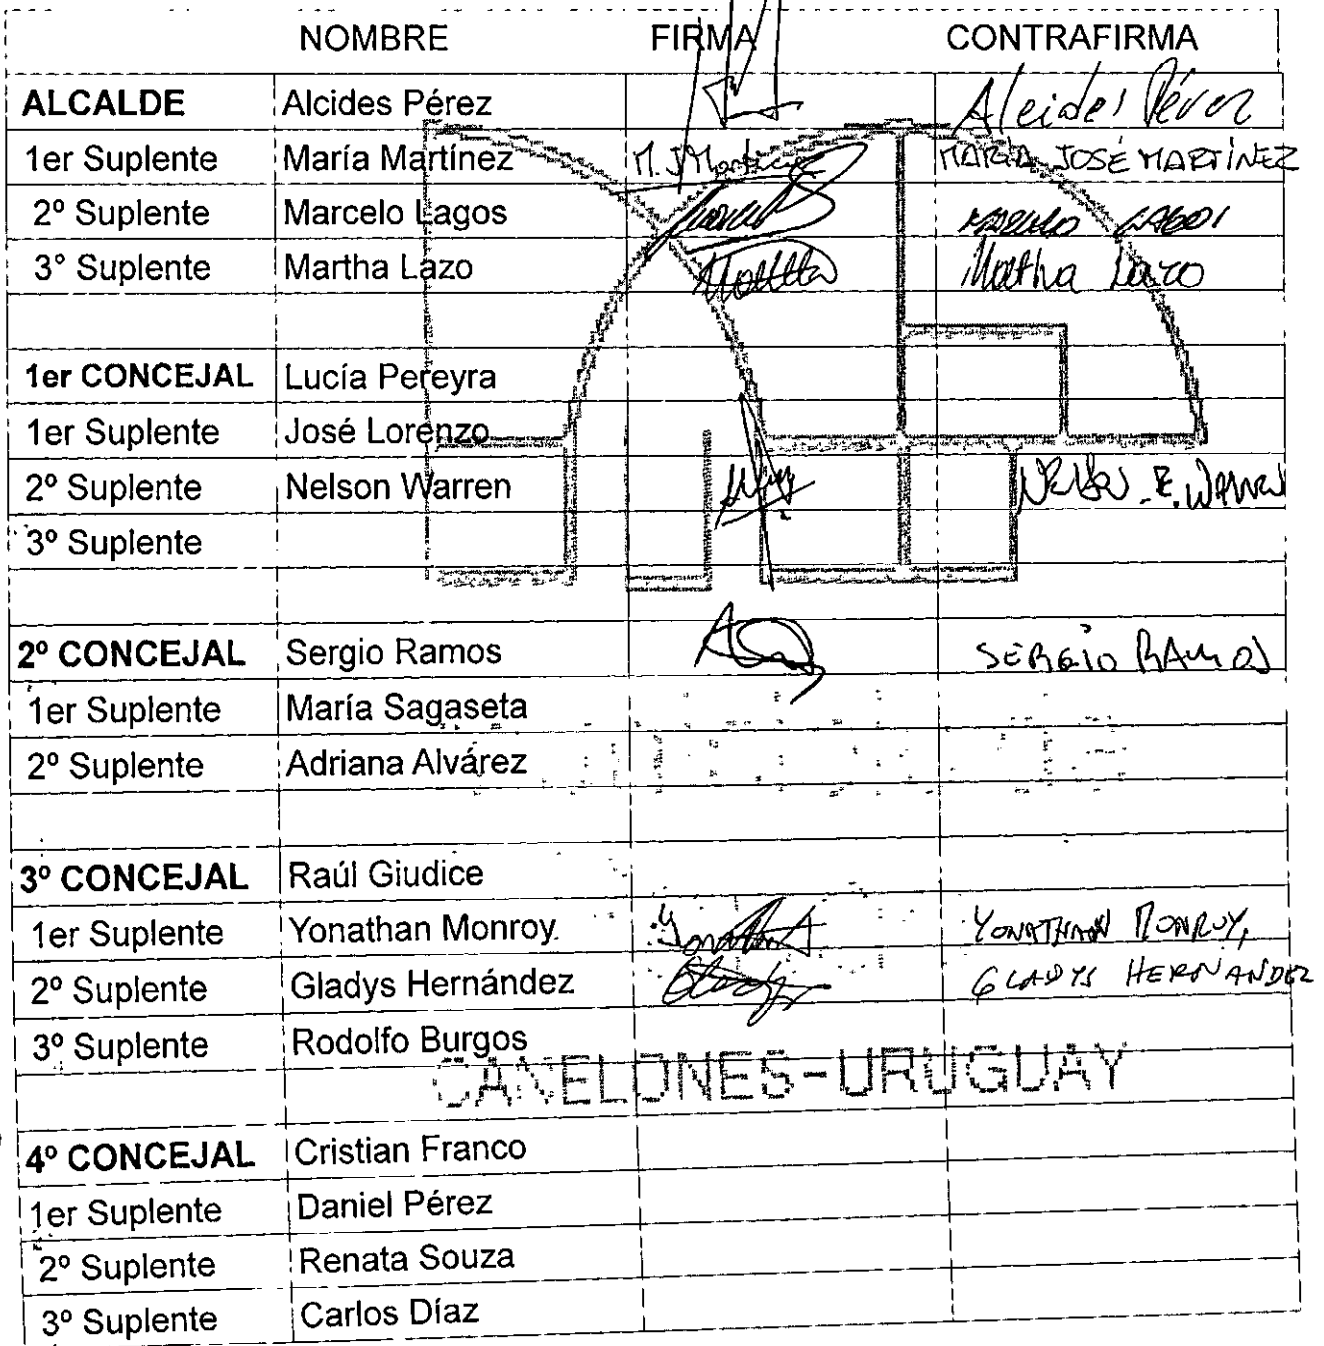 NOMBRE FIRMA CONTRAFIRMA
ALCALDE Alcides Pérez Alcides Pérez
1er Suplente María Martínez M. J Martínez MARÍA JOSÉ MARTÍNEZ
2º Suplente Marcelo Lagos MARCELO LAGOS
3° Suplente Martha Lazo Martha Lazo
1er CONCEJAL Lucía Pereyra
1er Suplente José Lorenzo
2º Suplente Nelson Warren Nelson E. Warren
3º Suplente
2º CONCEJAL Sergio Ramos SERGIO RAMOS
1er Suplente María Sagaseta
2º Suplente Adriana Alvárez
3º CONCEJAL Raúl Giudice
1er Suplente Yonathan Monroy. Yonathan YONATHAN MONROY,
2º Suplente Gladys Hernández Gladys GLADYS HERNANDEZ
3º Suplente Rodolfo Burgos
CANELONES-URUGUAY
4º CONCEJAL Cristian Franco
1er Suplente Daniel Pérez
2º Suplente Renata Souza
3º Suplente Carlos Díaz